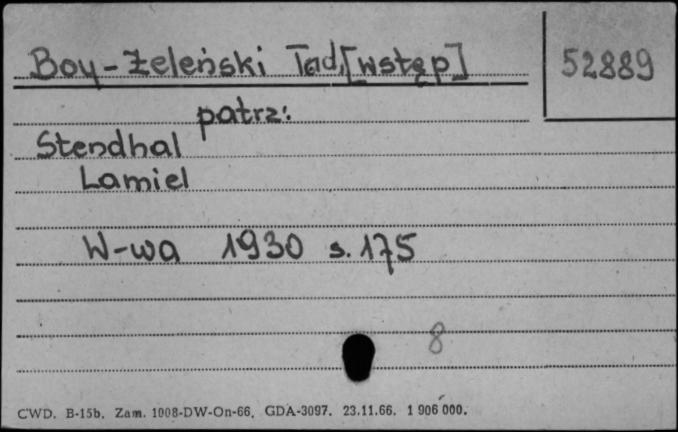 Boy-Żeleński Tad. [wstęp]
52889
patrz:
Stendhal
Lamiel
W-wa 1930 s. 175
8
CWD. B-15b. Zam. 1008-DW-On-66. GDA-3097. 23.11.66. 1 906 000.